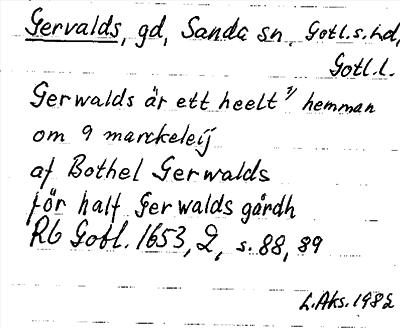 Gervalds, gd, Sanda sn, Gotl.s.hd,
Gotl.l.
Gerwalds är ett heelt 3/ hemman
om 9 marckeleij
af Bothel Gerwalds
för half Gerwalds gårdh
RB Gotl. 1653, 2, s. 88, 89
L.Aks. 1982